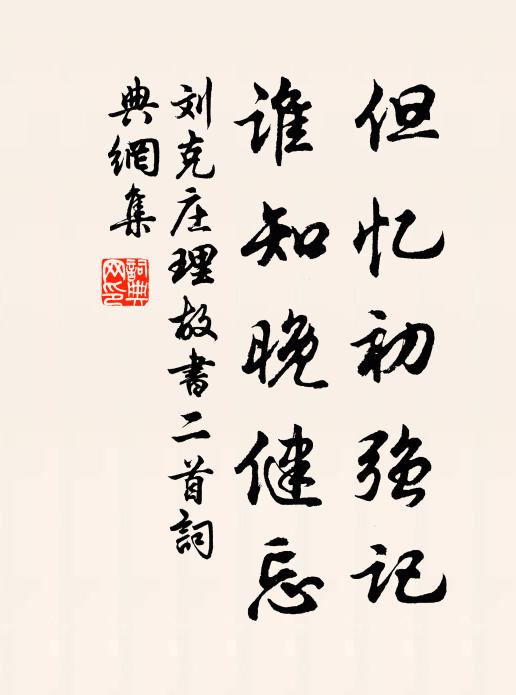 但忆初强记
谁知晚健忘
刘克庄理故书二首詞
典網集
詞典
网印